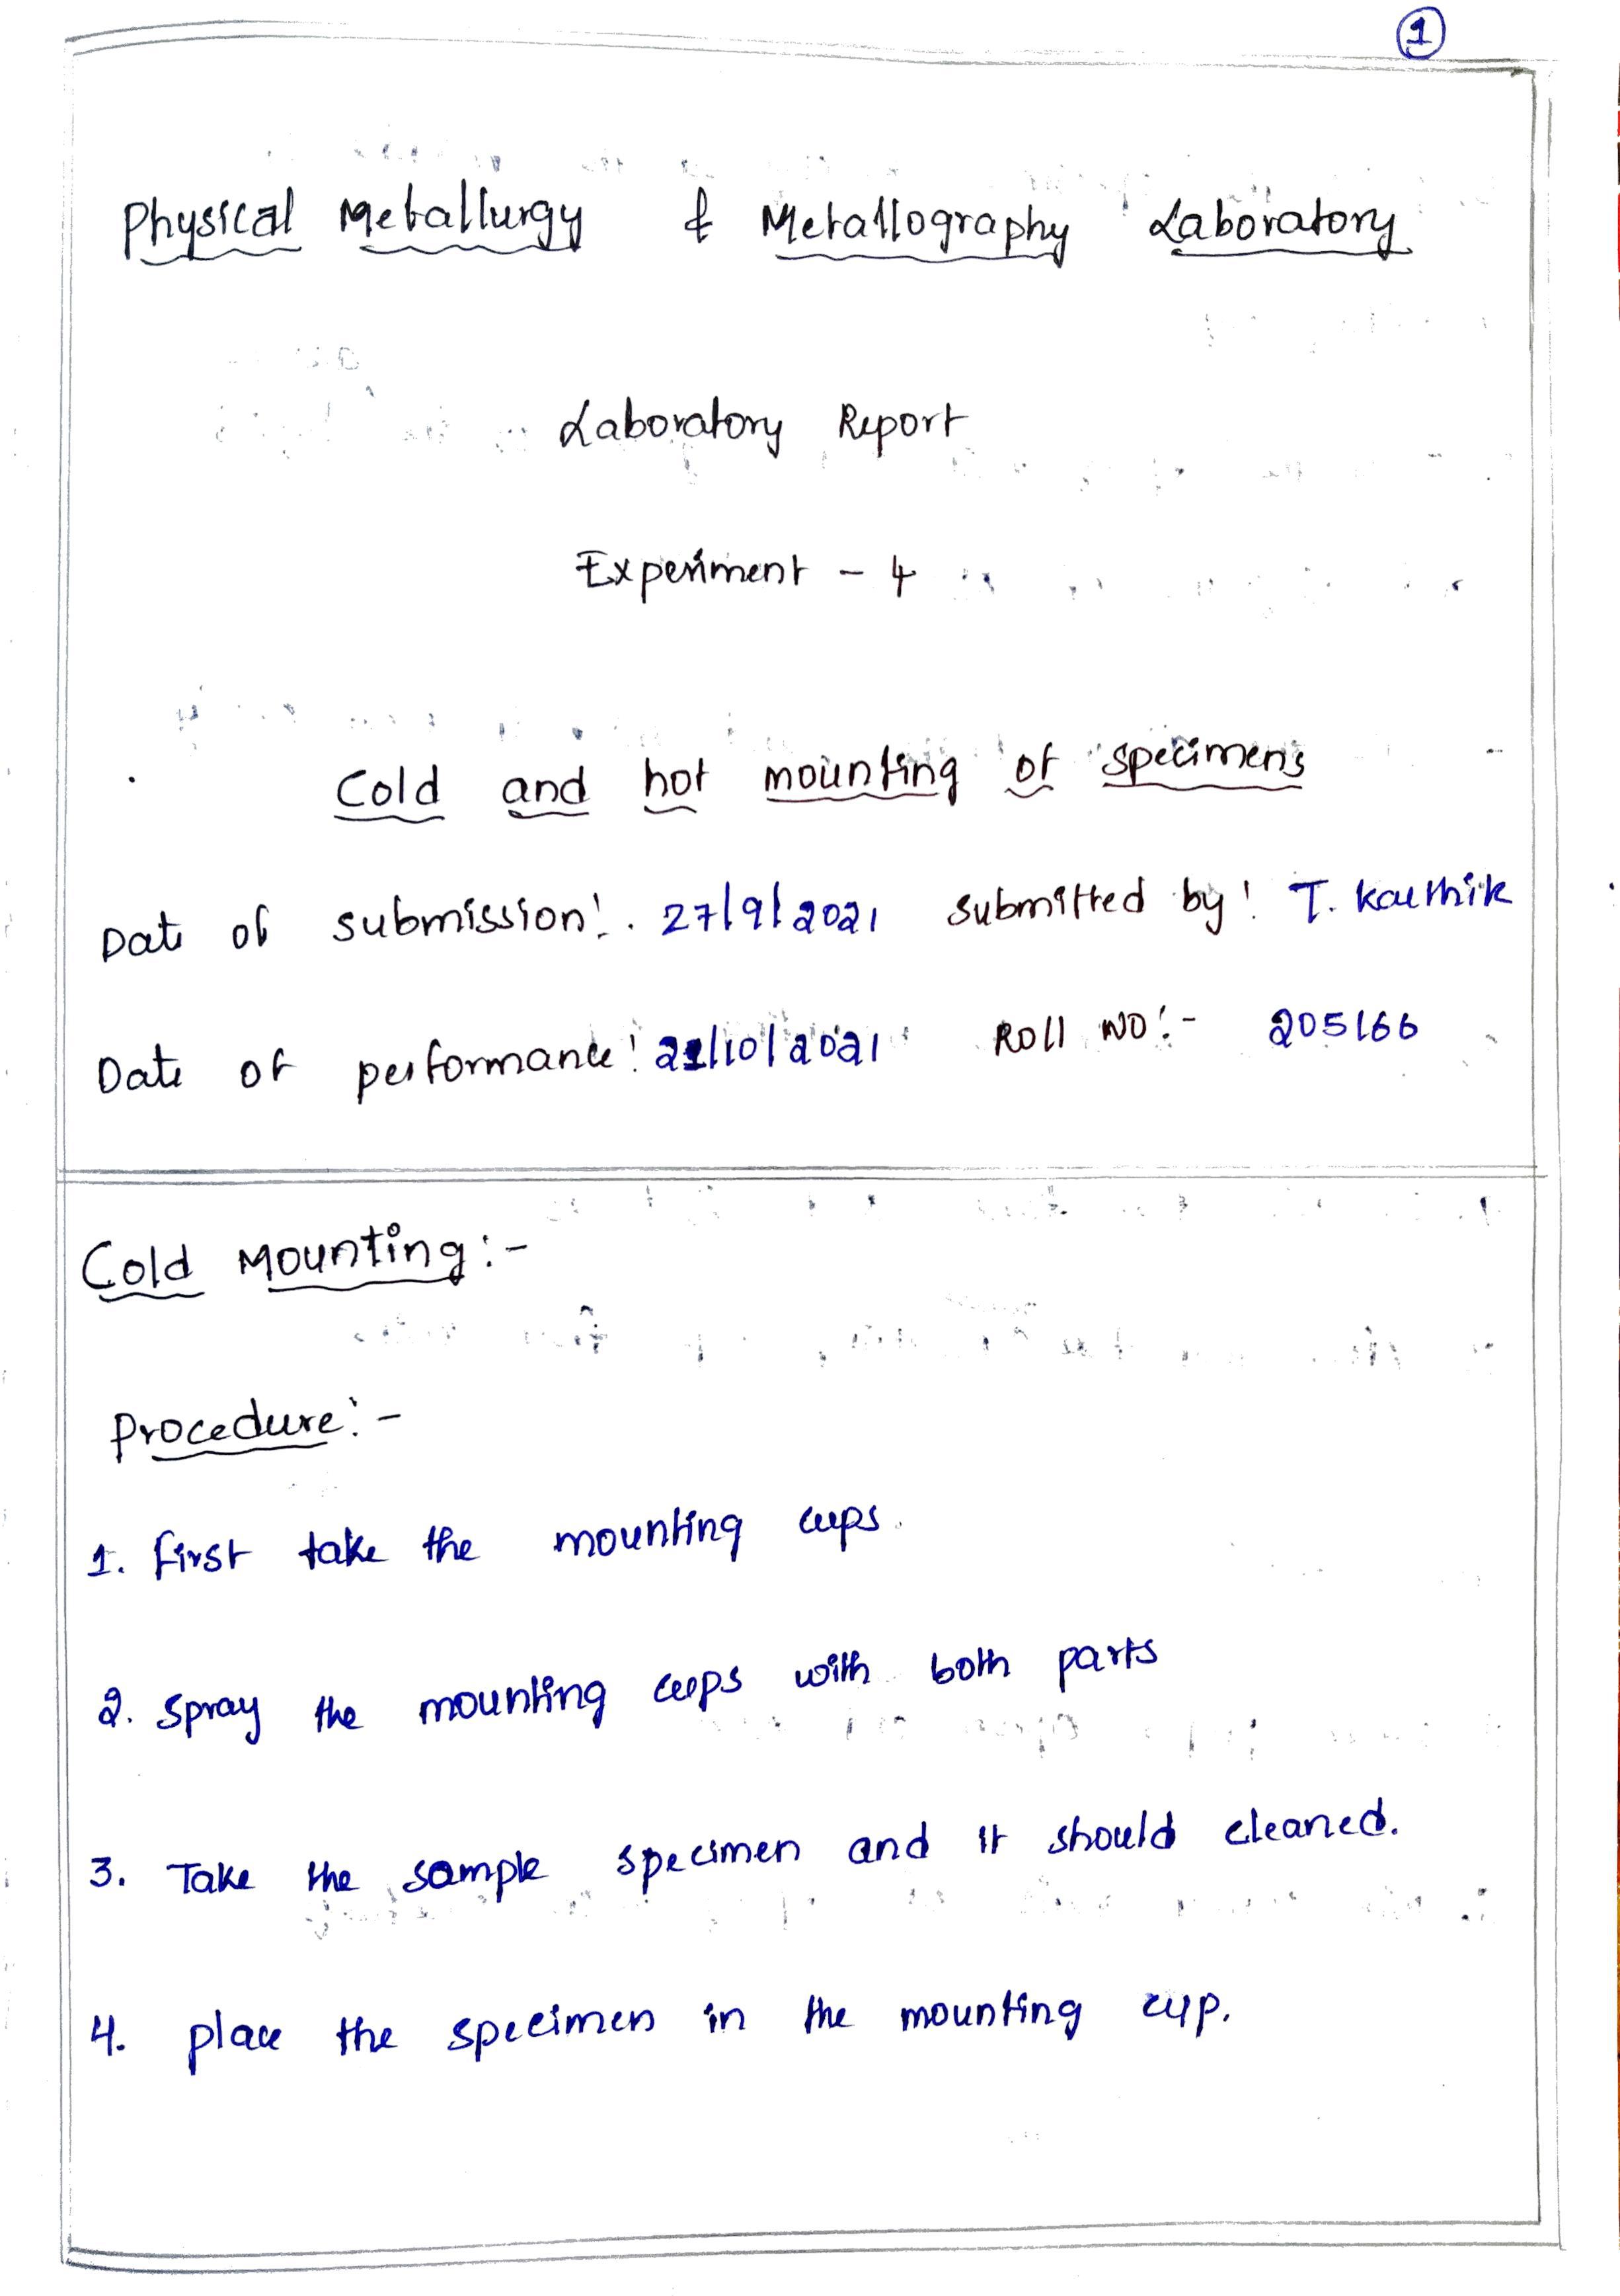 1
Physical Metallurgy & Metallography Laboratory
Laboratory Report
Experiment - 4
Cold and hot mounting of specimens
Date of submission:. 27/9/2021 submitted by: T. Karthik
Date of performance: /10/2021 Roll NO:- 205166
Cold Mounting:-
Procedure:-
1. First take the mounting cups.
2. Spray the mounting cups with both parts
3. Take the sample specimen and it should cleaned.
4. place the specimen in the mounting cup.